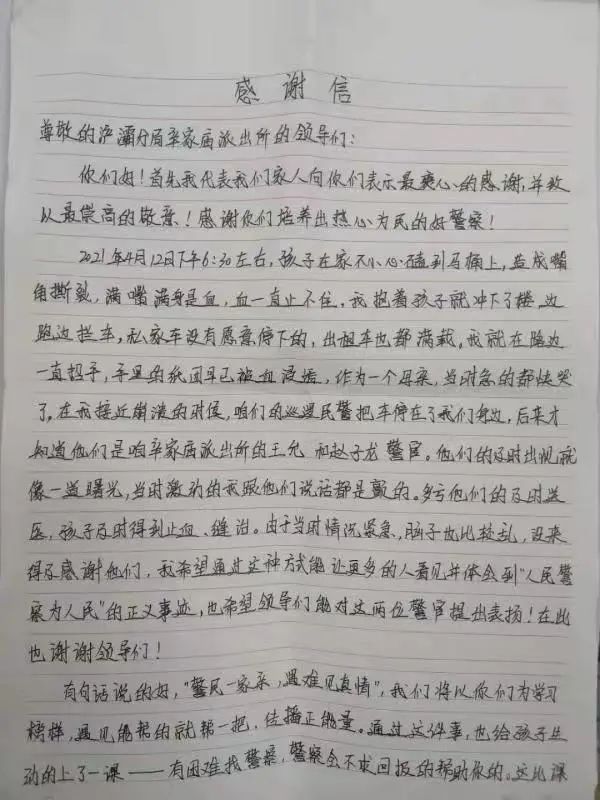 感谢信
尊敬的浐灞分局辛家庙派出所的领导们：
你们好！首先我代表我们家人向你们表示最衷心的感谢，并致
以最崇高的敬意！感谢你们培养出热心为民的好警察！
2021年4月12日下午6:30左右，孩子在家不小心磕到马桶上，造成嘴
角撕裂，满嘴满身是血，血一直止不住，我抱着孩子就冲下了楼，边
跑边拦车，私家车没有愿意停下的，出租车也都满载，我就在路边
一直招手，手里的纸团早已被血浸透，作为一个母亲，当时急的都快哭
了。在我接近崩溃的时候，咱们的巡逻民警把车停在了我们身边，后来才
知道他们是咱辛家庙派出所的王允和赵子龙警官。他们的及时出现就
像一道曙光，当时激动的我跟他们说话都是颤的。多亏他们的及时送
医，孩子及时得到止血、缝治。由于当时情况紧急，脑子也比较乱，没来
得及感谢他们，我希望通过这种方式能让更多的人看见并体会到“人民警
察为人民”的正义事迹，也希望领导们能对这两位警官提出表扬！在此
也谢谢领导们！
有句话说的好，“警民一家亲，遇难见真情”，我们将以你们为学习
榜样，遇见能帮的就帮一把，传播正能量。通过这件事，也给孩子生
动的上了一课——有困难找警察，警察会不求回报的帮助你的。这比课